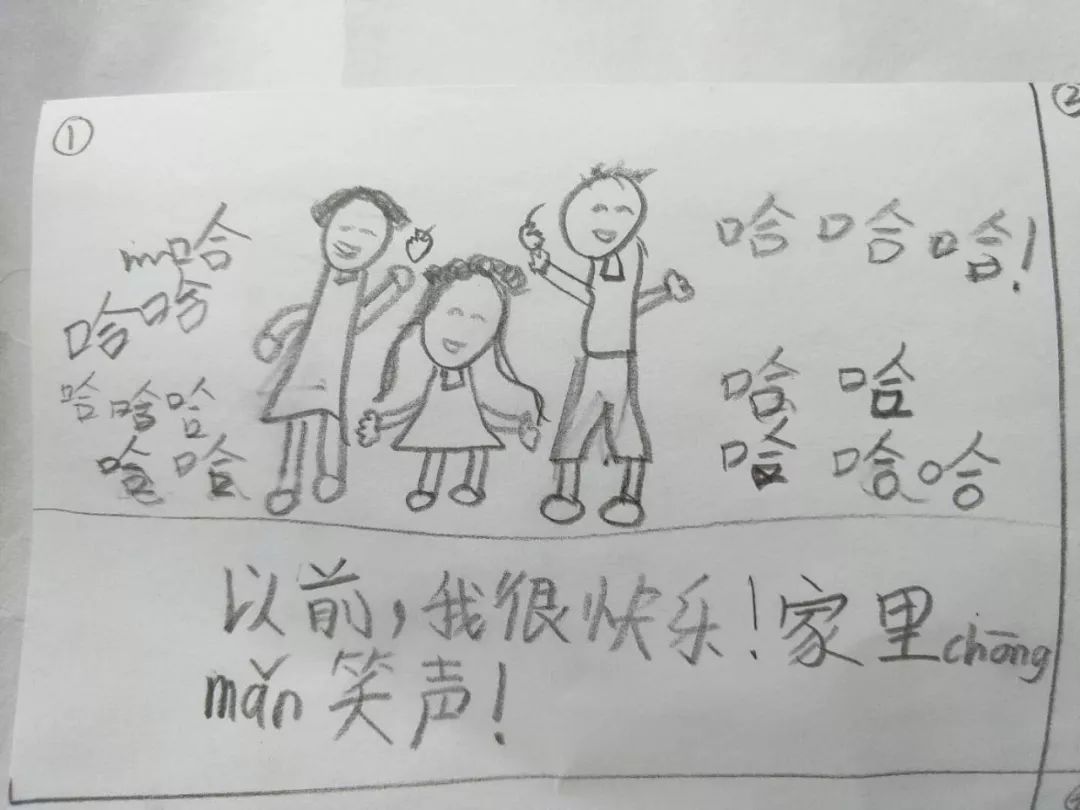 ①
②
哈
哈哈
哈哈哈
哈哈
哈哈哈!
哈哈
哈哈哈
以前,我很快乐!家里chōng
mǎn笑声!